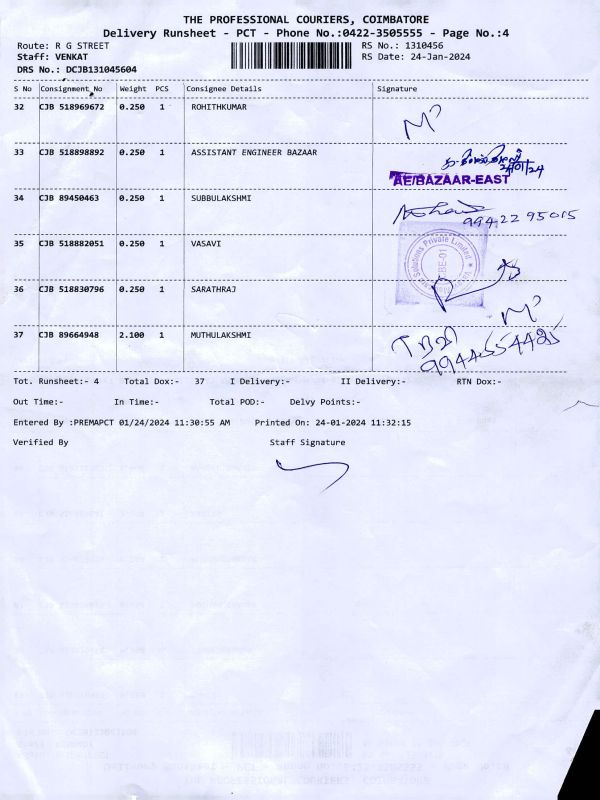 THE PROFESSIONAL COURIERS, COIMBATORE
Delivery Runsheet - PCT - Phone No.:0422-3505555 - Page No.:4
Route: R G STREET RS No.: 1310456
Staff: VENKAT RS Date: 24-Jan-2024
DRS No.: DCJB131045604
S No Consignment No Weight PCS Consignee Details Signature
32 CJB 518969672 0.250 1 ROHITHKUMAR
33 CJB 518898892 0.250 1 ASSISTANT ENGINEER BAZAAR
24/01/24
AE/BAZAAR-EAST
34 CJB 89450463 0.250 1 SUBBULAKSHMI
99422 95015
35 CJB 518882051 0.250 1 VASAVI
Solutions Private Limited
CBE-01
36 CJB 518830796 0.250 1 SARATHRAJ
37 CJB 89664948 2.100 1 MUTHULAKSHMI
Tot. Runsheet:- 4 Total Dox:- 37 I Delivery:- II Delivery:- RTN Dox:-
Out Time:- In Time:- Total POD:- Delvy Points:-
Entered By :PREMAPCT 01/24/2024 11:30:55 AM Printed On: 24-01-2024 11:32:15
Verified By Staff Signature